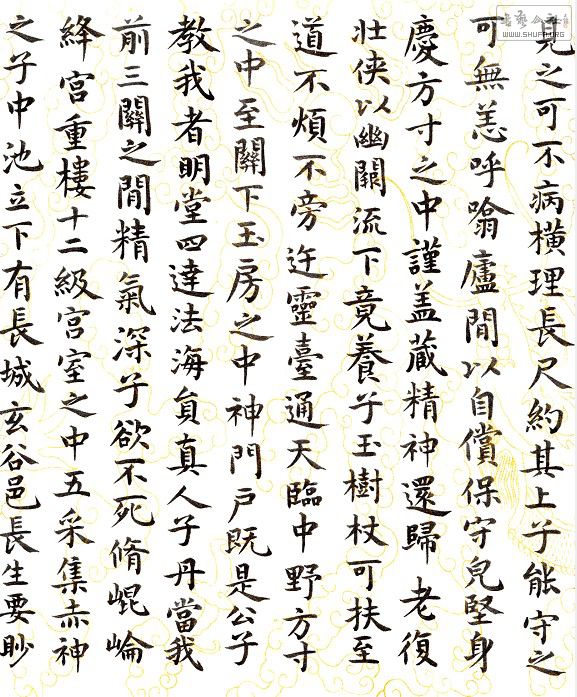 WWW.SHUFA.ORG
見之可不病橫理長尺約其上子能守之
可無恙呼噏廬閒以自償保守皃堅身
慶方寸之中謹盖藏精神還歸老復
壯侠以幽闕流下竟養子玉樹杖可扶至
道不煩不旁迕靈臺通天臨中野方寸
之中至關下玉房之中神門戶既是公子
教我者明堂四達法海員真人子丹當我
前三關之閒精氣深子欲不死脩崐崘
絳宮重樓十二級宮室之中五采集赤神
之子中池立下有長城玄谷邑長生要眇